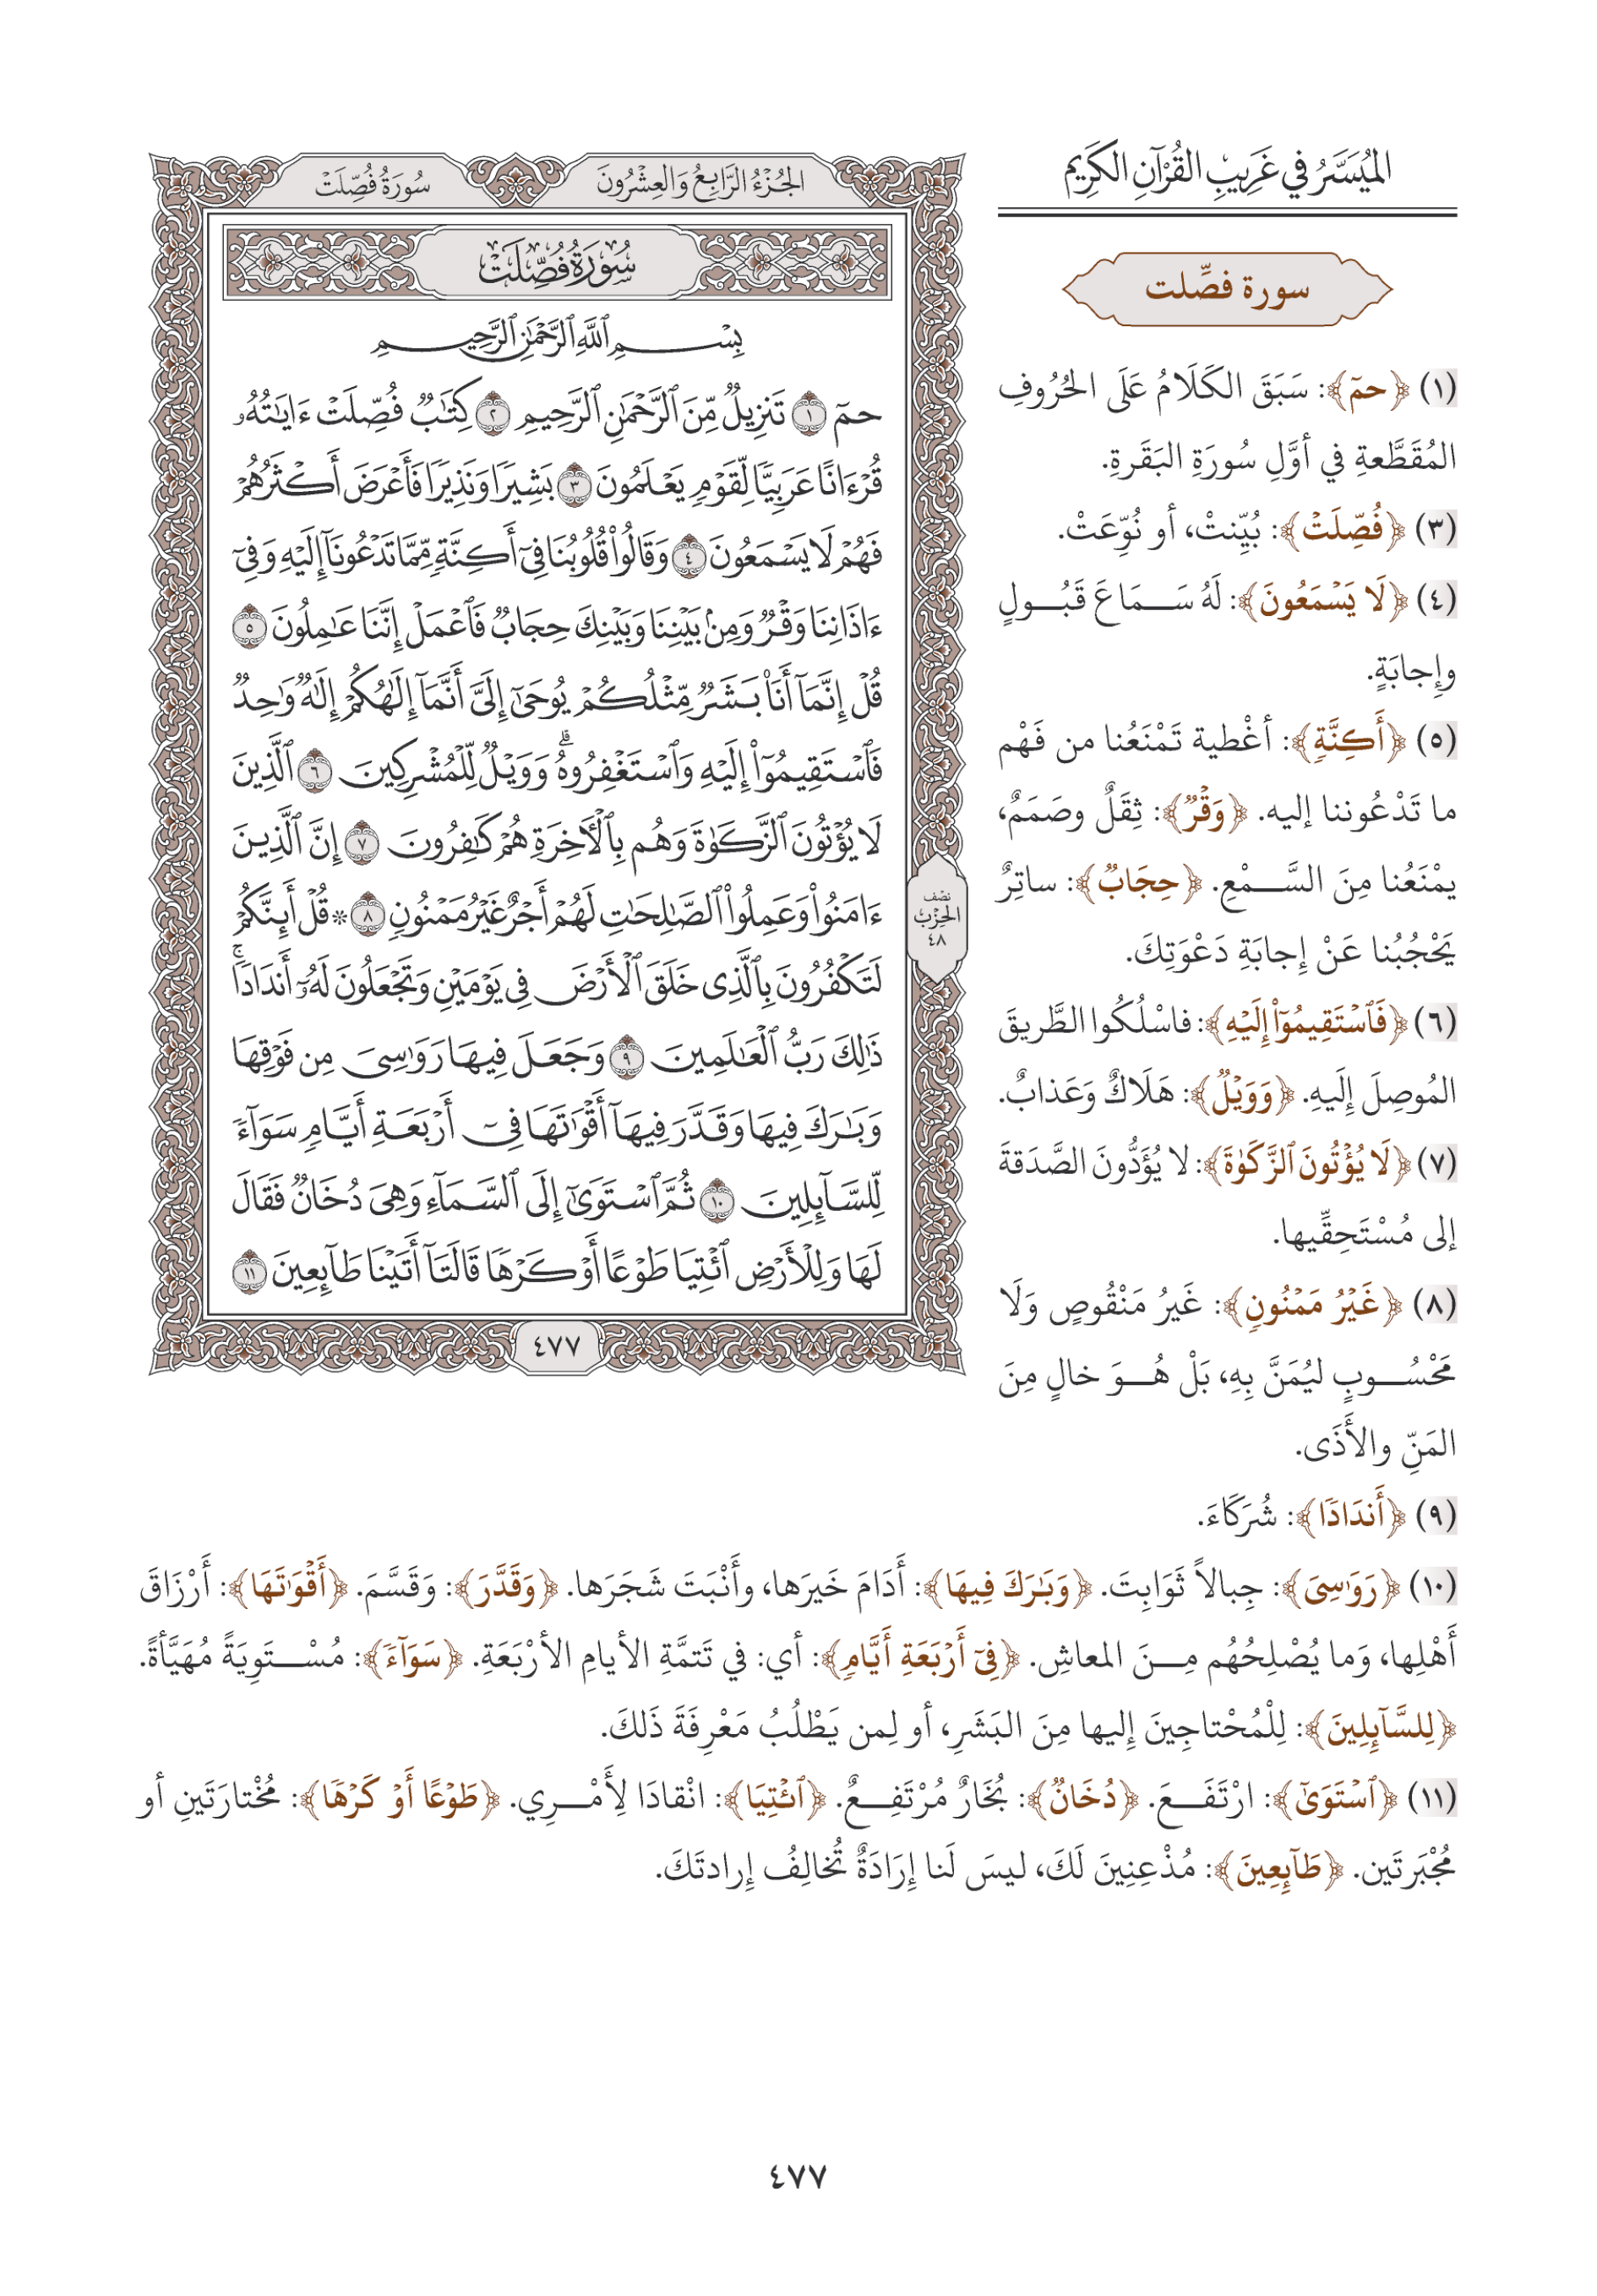 الميُسَّرُ في غَرِيبِ القُرْآنِ الكَرِيم
سورة فصِّلت
(١) ﴿حمٓ﴾: سَبَقَ الكَلَامُ عَلَى الحُرُوفِ
المُقَطَّعةِ في أوَّلِ سُورَةِ البَقَرةِ.
(٣) ﴿فُصِّلَتۡ﴾: بُيِّنتْ، أو نُوِّعَتْ.
(٤) ﴿لَا يَسۡمَعُونَ﴾: لَهُ سَمَاعَ قَبُولٍ
وإِجابَةٍ.
(٥) ﴿أَكِنَّةٖ﴾: أغْطية تَمْنَعُنا من فَهْم
ما تَدْعُوننا إليه. ﴿وَقۡرٞ﴾: ثِقَلٌ وصَمَمٌ،
يمْنَعُنا مِنَ السَّمْعِ. ﴿حِجَابٞ﴾: ساتِرٌ
يَحْجُبُنا عَنْ إِجابَةِ دَعْوَتِكَ.
(٦) ﴿فَٱسۡتَقِيمُوٓاْ إِلَيۡهِ﴾: فاسْلُكُوا الطَّريقَ
المُوصِلَ إِلَيهِ. ﴿وَوَيۡلٞ﴾: هَلَاكٌ وَعَذابٌ.
(٧) ﴿لَا يُؤۡتُونَ ٱلزَّكَوٰةَ﴾: لا يُؤَدُّونَ الصَّدَقةَ
إلى مُسْتَحِقِّيها.
(٨) ﴿غَيۡرُ مَمۡنُونٖ﴾: غَيرُ مَنْقُوصٍ وَلَا
مَحْسُوبٍ ليُمَنَّ بِهِ، بَلْ هُوَ خالٍ مِنَ
المَنِّ والأَذَى.
(٩) ﴿أَندَادٗا﴾: شُرَكَاءَ.
(١٠) ﴿رَوَٰسِيَ﴾: جِبالاً ثَوَابِتَ. ﴿وَبَٰرَكَ فِيهَا﴾: أَدَامَ خَيرَها، وأَنْبَتَ شَجَرَها. ﴿وَقَدَّرَ﴾: وَقَسَّمَ. ﴿أَقۡوَٰتَهَا﴾: أَرْزَاقَ
أَهْلِها، وَما يُصْلِحُهُم مِنَ المعاشِ. ﴿فِيٓ أَرۡبَعَةِ أَيَّامٖ﴾: أي: في تَتمَّةِ الأيامِ الأرْبَعَةِ. ﴿سَوَآءٗ﴾: مُسْتَوِيَةً مُهَيَّأةً.
﴿لِلسَّآئِلِينَ﴾: لِلْمُحْتاجِينَ إليها مِنَ البَشَرِ، أو لِمن يَطْلُبُ مَعْرِفَةَ ذَلكَ.
(١١) ﴿ٱسۡتَوَىٰٓ﴾: ارْتَفَعَ. ﴿دُخَانٞ﴾: بُخَارٌ مُرْتَفِعٌ. ﴿ٱئۡتِيَا﴾: انْقادَا لِأَمْرِي. ﴿طَوۡعًا أَوۡ كَرۡهٗا﴾: مُخْتارَتَينِ أو
مُجْبَرتَين. ﴿طَآئِعِينَ﴾: مُذْعِنِينَ لَكَ، ليسَ لَنا إِرَادَةٌ تُخالِفُ إرادتَكَ.
الجُزْءُ الرَّابِعُ وَالعِشْرُونَ
سُورَةُ فُصِّلَتْ
سُورَةُ فُصِّلَتۡ
بِسۡمِ ٱللَّهِ ٱلرَّحۡمَٰنِ ٱلرَّحِيمِ
حمٓ ١ تَنزِيلٞ مِّنَ ٱلرَّحۡمَٰنِ ٱلرَّحِيمِ ٢ كِتَٰبٞ فُصِّلَتۡ ءَايَٰتُهُۥ
قُرۡءَانًا عَرَبِيّٗا لِّقَوۡمٖ يَعۡلَمُونَ ٣ بَشِيرٗا وَنَذِيرٗا فَأَعۡرَضَ أَكۡثَرُهُمۡ
فَهُمۡ لَا يَسۡمَعُونَ ٤ وَقَالُواْ قُلُوبُنَا فِيٓ أَكِنَّةٖ مِّمَّا تَدۡعُونَآ إِلَيۡهِ وَفِيٓ
ءَاذَانِنَا وَقۡرٞ وَمِنۢ بَيۡنِنَا وَبَيۡنِكَ حِجَابٞ فَٱعۡمَلۡ إِنَّنَا عَٰمِلُونَ ٥
قُلۡ إِنَّمَآ أَنَا۠ بَشَرٞ مِّثۡلُكُمۡ يُوحَىٰٓ إِلَيَّ أَنَّمَآ إِلَٰهُكُمۡ إِلَٰهٞ وَٰحِدٞ
فَٱسۡتَقِيمُوٓاْ إِلَيۡهِ وَٱسۡتَغۡفِرُوهُۗ وَوَيۡلٞ لِّلۡمُشۡرِكِينَ ٦ ٱلَّذِينَ
لَا يُؤۡتُونَ ٱلزَّكَوٰةَ وَهُم بِٱلۡأٓخِرَةِ هُمۡ كَٰفِرُونَ ٧ إِنَّ ٱلَّذِينَ
ءَامَنُواْ وَعَمِلُواْ ٱلصَّٰلِحَٰتِ لَهُمۡ أَجۡرٌ غَيۡرُ مَمۡنُونٖ ٨ ۞ قُلۡ أَئِنَّكُمۡ
لَتَكۡفُرُونَ بِٱلَّذِي خَلَقَ ٱلۡأَرۡضَ فِي يَوۡمَيۡنِ وَتَجۡعَلُونَ لَهُۥٓ أَندَادٗاۚ
ذَٰلِكَ رَبُّ ٱلۡعَٰلَمِينَ ٩ وَجَعَلَ فِيهَا رَوَٰسِيَ مِن فَوۡقِهَا
وَبَٰرَكَ فِيهَا وَقَدَّرَ فِيهَآ أَقۡوَٰتَهَا فِيٓ أَرۡبَعَةِ أَيَّامٖ سَوَآءٗ
لِّلسَّآئِلِينَ ١٠ ثُمَّ ٱسۡتَوَىٰٓ إِلَى ٱلسَّمَآءِ وَهِيَ دُخَانٞ فَقَالَ
لَهَا وَلِلۡأَرۡضِ ٱئۡتِيَا طَوۡعًا أَوۡ كَرۡهٗا قَالَتَآ أَتَيۡنَا طَآئِعِينَ ١١
نصف
الحزب
٤٨
٤٧٧
٤٧٧